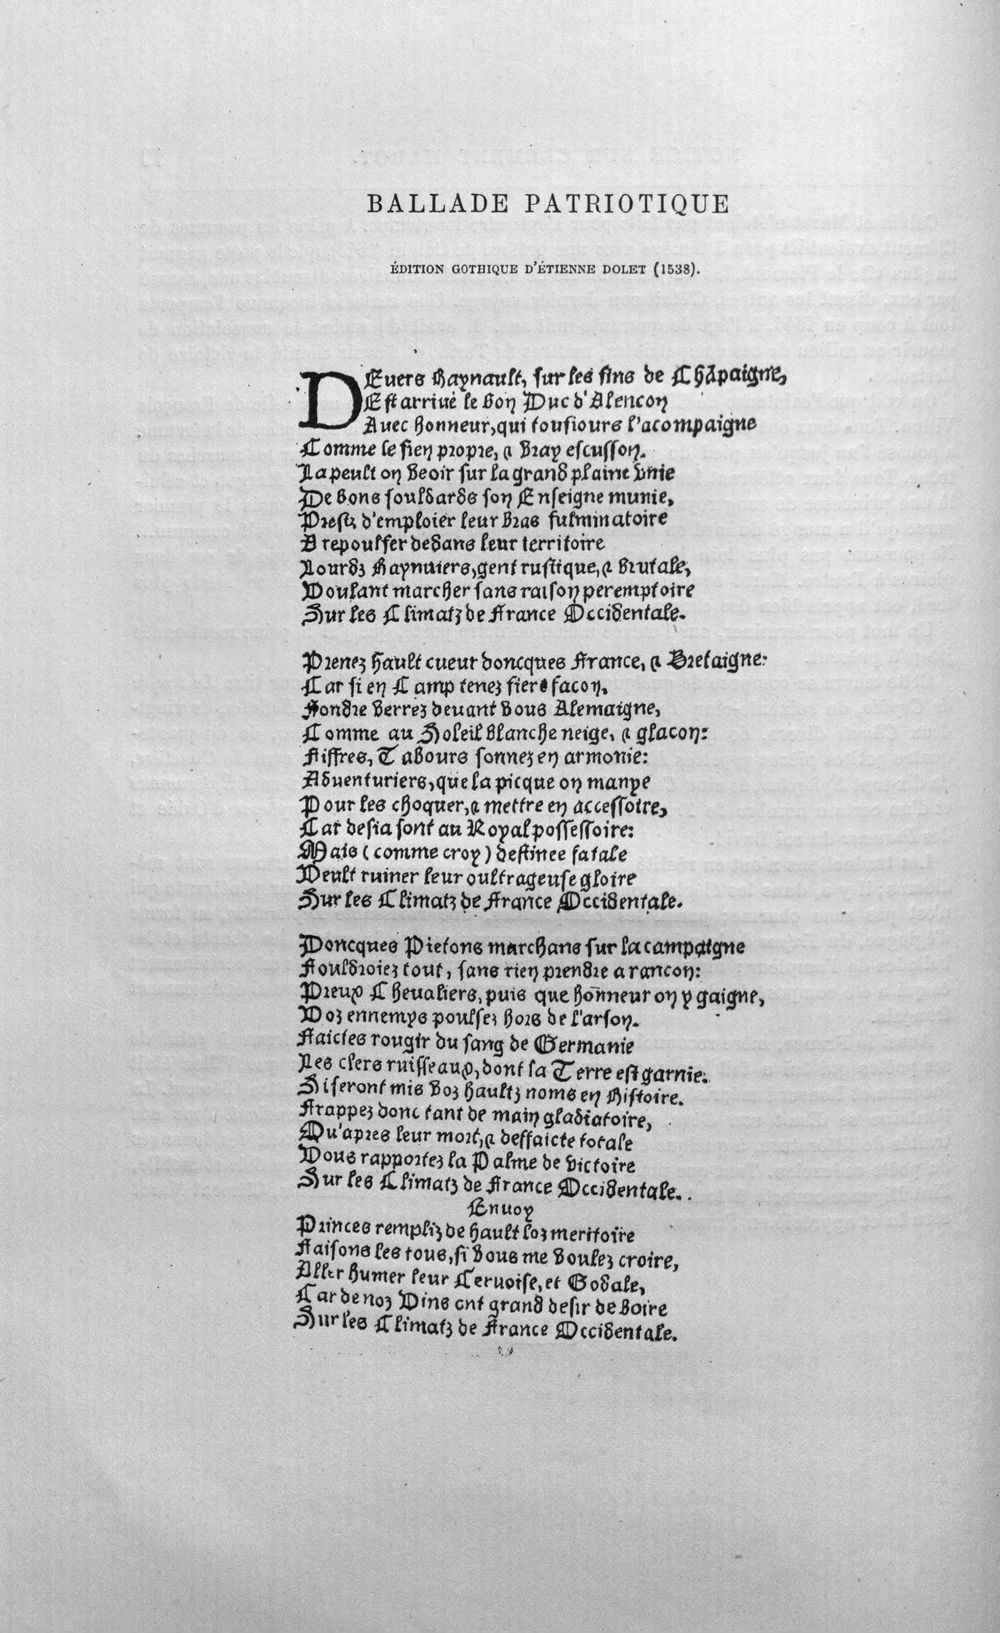 BALLADE PATRIOTIQUE
ÉDITION GOTHIQUE D'ÉTIENNE DOLET (1538).
DEvers Haynault, sur les fins de Chāpaigne,
Est arrivé le bon Duc d'Alencon
Avec honneur, qui tousiours l'acompaigne
Comme le sien propre, & vray escusson.
La peult on veoir sur la grand plaine vnie
De bons souldards son Enseigne munie,
Prestz d'emploier leur bras fulminatoire
A repoulser dedans leur territoire
Lourdz Haynuiers, gent rustique, & brutale,
Voulant marcher sans raison peremptoire
Sur les Climatz de France Occidentale.
Prenez hault cueur doncques France, & Bretaigne:
Car si en Camp tenez fiere facon,
Fondre verrez deuant vous Alemaigne,
Comme au Soleil blanche neige, & glacon:
Fiffres, Tabours sonnez en armonie:
Aduenturiers, que la picque on manye
Pour les choquer, & mettre en accessoire,
Car desia sont au Royal possessoire:
Mais (comme croy) destinee fatale
Veult ruiner leur oultrageuse gloire
Sur les Climatz de France Occidentale.
Doncques Pietons marchans sur la campaigne
Fouldroiez tout, sans rien prendre a rancon:
Preux Chevaliers, puis que hōnneur on y gaigne,
Voz ennemys poulsez hors de l'arson.
Faictes rougir du sang de Germanie
Les clers ruisseaux, dont la Terre est garnie:
Si seront mis voz haultz noms en Histoire.
Frappez donc tant de main gladiatoire,
Qu'apres leur mort, & deffaicte totale
Vous rapportez la Palme de victoire
Sur les Climatz de France Occidentale.
Enuoy
Princes rempliz de hault loz meritoire
Faisons les tous, si vous me voulez croire,
Aller humer leur Ceruoise, et Godale,
Car de noz Vins ont grand desir de boire
Sur les Climatz de France Occidentale.